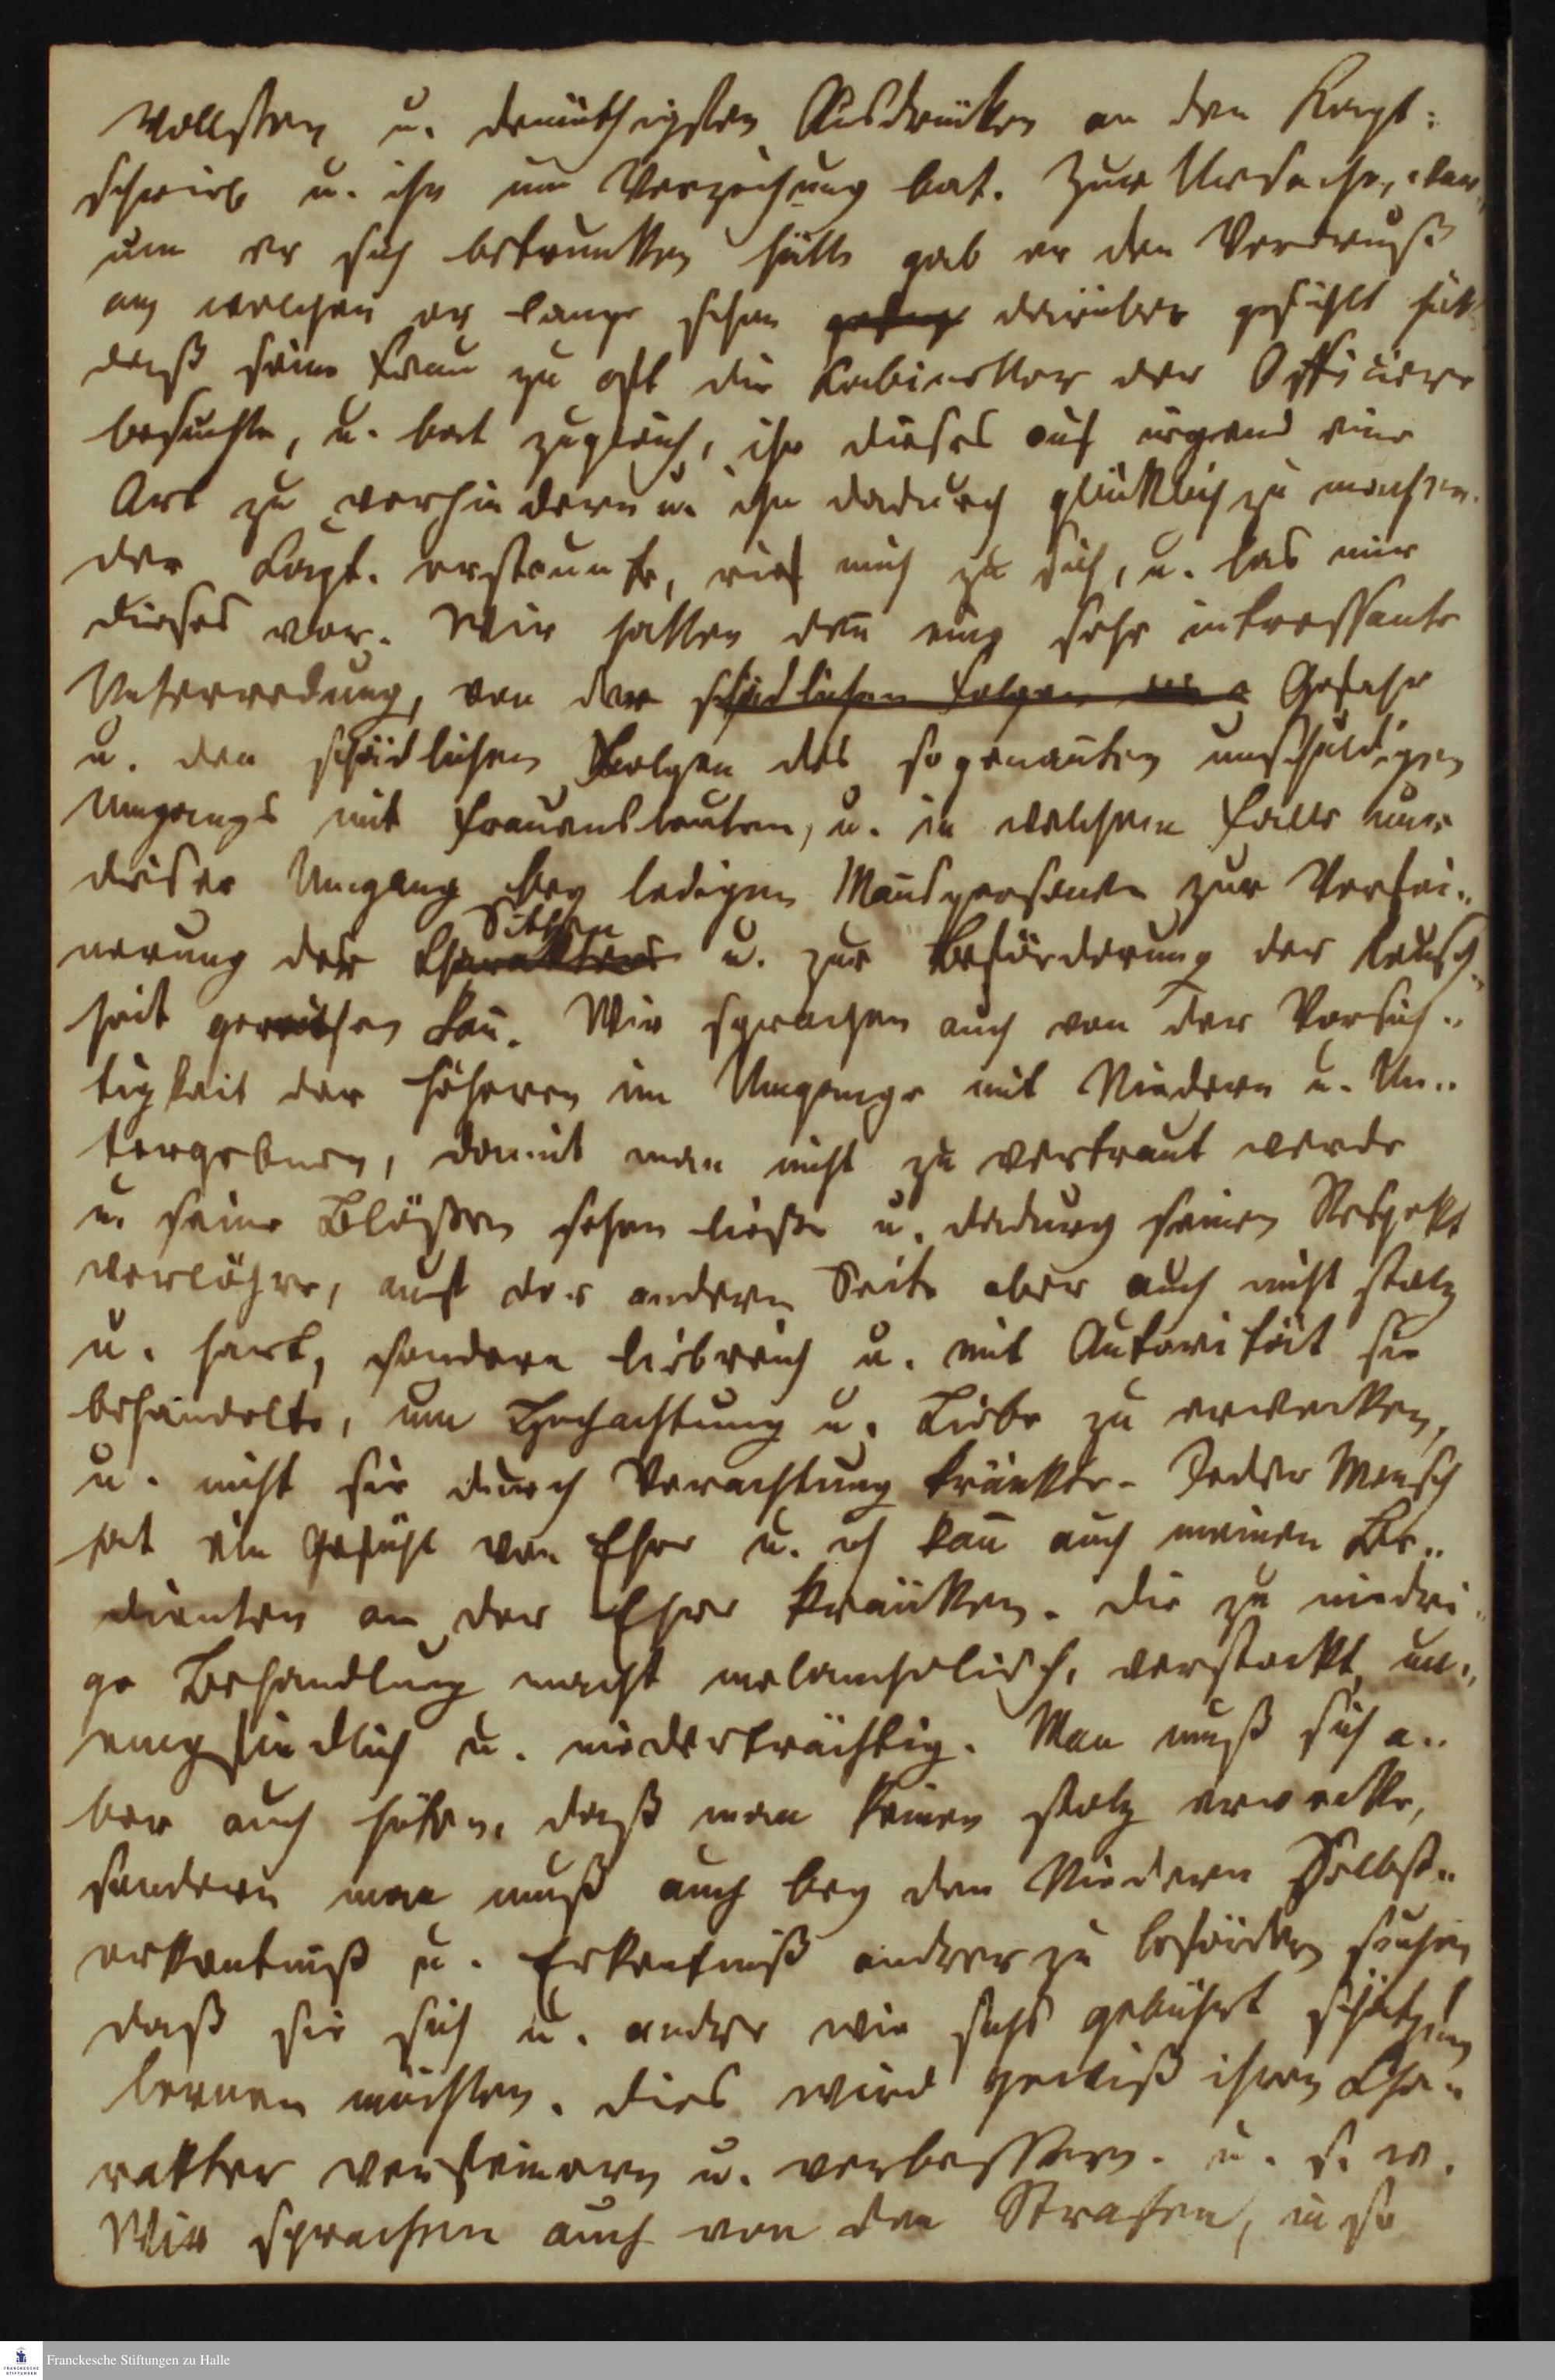 vollsten u. demüthigsten Ausdrücken an den Kapt:
schrieb u. ihn um Verzeihung bat. Zur Ursache, war„
um er sich betrunken hätte gab er den Verdruß
an welchen er lange schon darüber gefühlt hät
daß seine Frau zu oft die Kabinetter der Officiere
besuchte, u. bat zugleich, ihr dieses auf irgend eine
Art zu verhindern u. ihn dadurch glücklich zu machen.
der Capt. erstaunte, rief mich zu sich, u. las mir
dieses vor. Wir hatten den̄ eine sehr intressante
Unterredung, von der schädlichen Folgen Gefahr
u. den schädlichen Folgen des sogenan̄ten unschuldigen
Umgangs mit Frauensleuten, u. in welchem Falle nur
dieser Umgang bey ledigen Man̄spersonen zur Verfei„
nerung der Charakters Sitten u. zur Beförderung der Keusch„
heit gereichen kan̄. Wir sprachen auch von der Vorsich„
tigkeit der Höheren im Umgange mit Niedern u. Un„
tergebnen, damit man nicht zu vertraut werde
u. seine Blößen sehen ließe u. dadurch seinen Respekt
verlöhre, auf der andern Seite aber auch nicht stolz
u. hart, sondern liebreich u. mit Autorität sie
behandelte, um Hochachtung u. Liebe zu erwecken,
u. nicht sie durch Verachtung kränkte. Jeder Mensch
hat ein Gefühl von Ehre u. ich kan̄ auch meinen Be„
dienten an der Ehre kränken. Die zu niedri„
ge Behandlung macht melancholisch, verstockt, un„
empfindlich u. niederträchtig. Man muß sich a„
ber auch hüten, daß man keinen stolz erwecke,
sondern man muß auch bey den Niedern Selbst„
erkentniß u. Erkentniß andrer zu befördern suchen
daß sie sich u. andre wie sichs gebührt schätzen
lernen möchten. Dies wird gewiß ihren Cha„
rakter verfeinern u. verbessern. u. s. w.
Wir sprachen auch von den Strafen, in so
Franckesche Stiftungen zu Halle